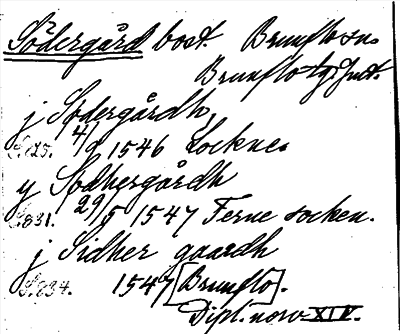 Södergård bost. Brunflo sn.
Brunflo tg. Jmt.
j Södergårdh,
S. 825. 4/9 1546 Lockne.
y Sødhergårdh
S. 831. 29/5 1547 Ferne socken.
j Sidher gaardh
S. 834. 1547 [Brunflo].
Dipl. norv. XIV.